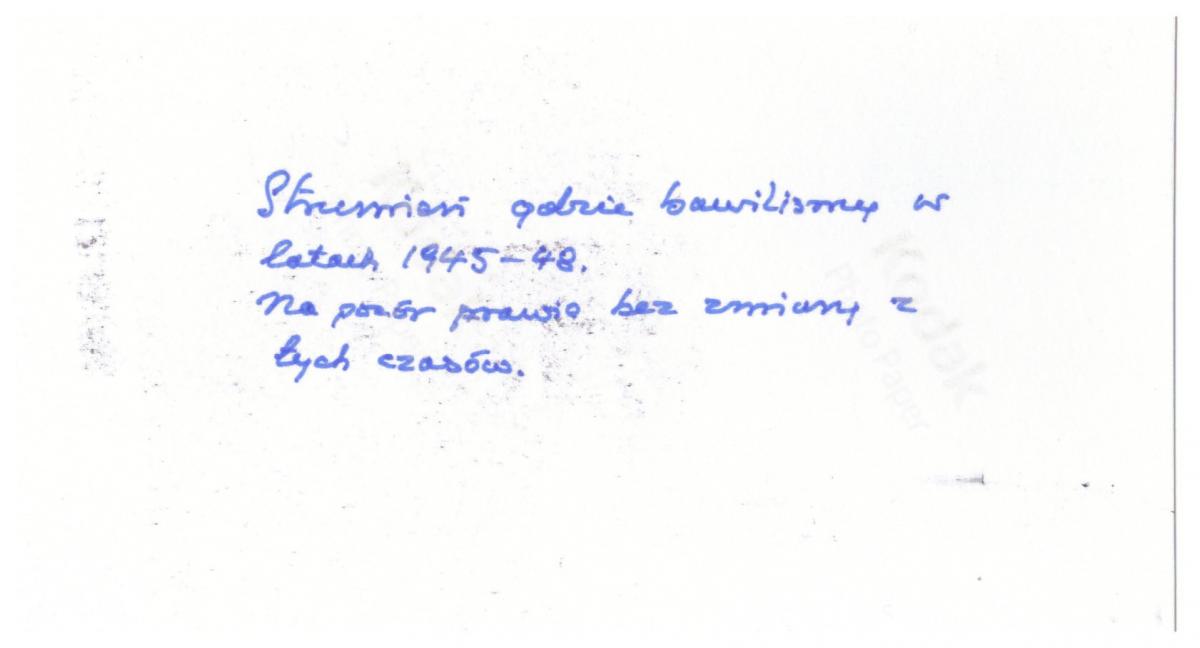 Strumień gdzie bawiliśmy w
latach 1945-48.
Na pozór prawie bez zmiany z
tych czasów.
Kodak
Photo Paper